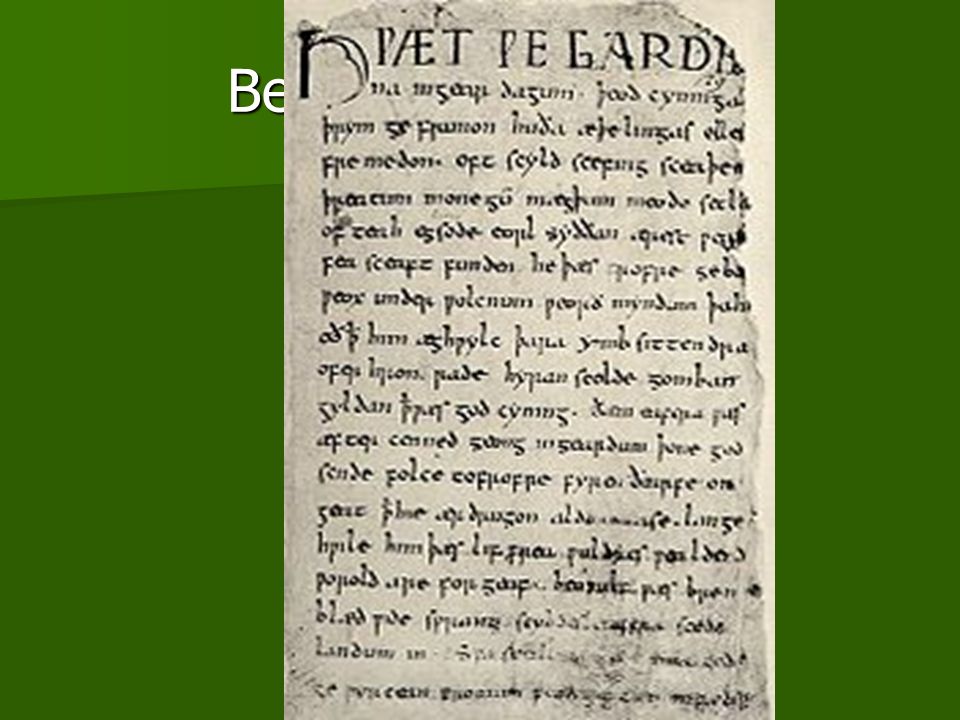 Be
HǷÆT ǷE GARDE
na ingear dagum. þeod cyninga
þrym ge frunon huða æþelingas elle
fre medon. oft scyld scefing sceaþen
þreatum monegū mægþum meodo setla
of teah egsode eorl syððan ærest ƿear
fea sceaft funden he þæs frofre geba
ƿeox under ƿolcnum ƿeorð myndum þah
oð ꝥ him æghƿylc þara ymb sittendra
ofer hron rade hyran scolde gomban
gyldan ꝥ ƿæs god cyning. ðæm eafera ƿæs
æfter cenned geong ingeardum þone god
sende folce tofrofre fyren ðearfe on
geat ꝥ hie ær drugon aldor ase. lange
hƿile him þæs lif frea ƿuldres ƿealdend
ƿorold are for geaf. beoƿulf ƿæs breme
blæd ƿide sprang scyldes eafera scede
landum in. Sƿa gode
ge ƿyrcean fromum feoh